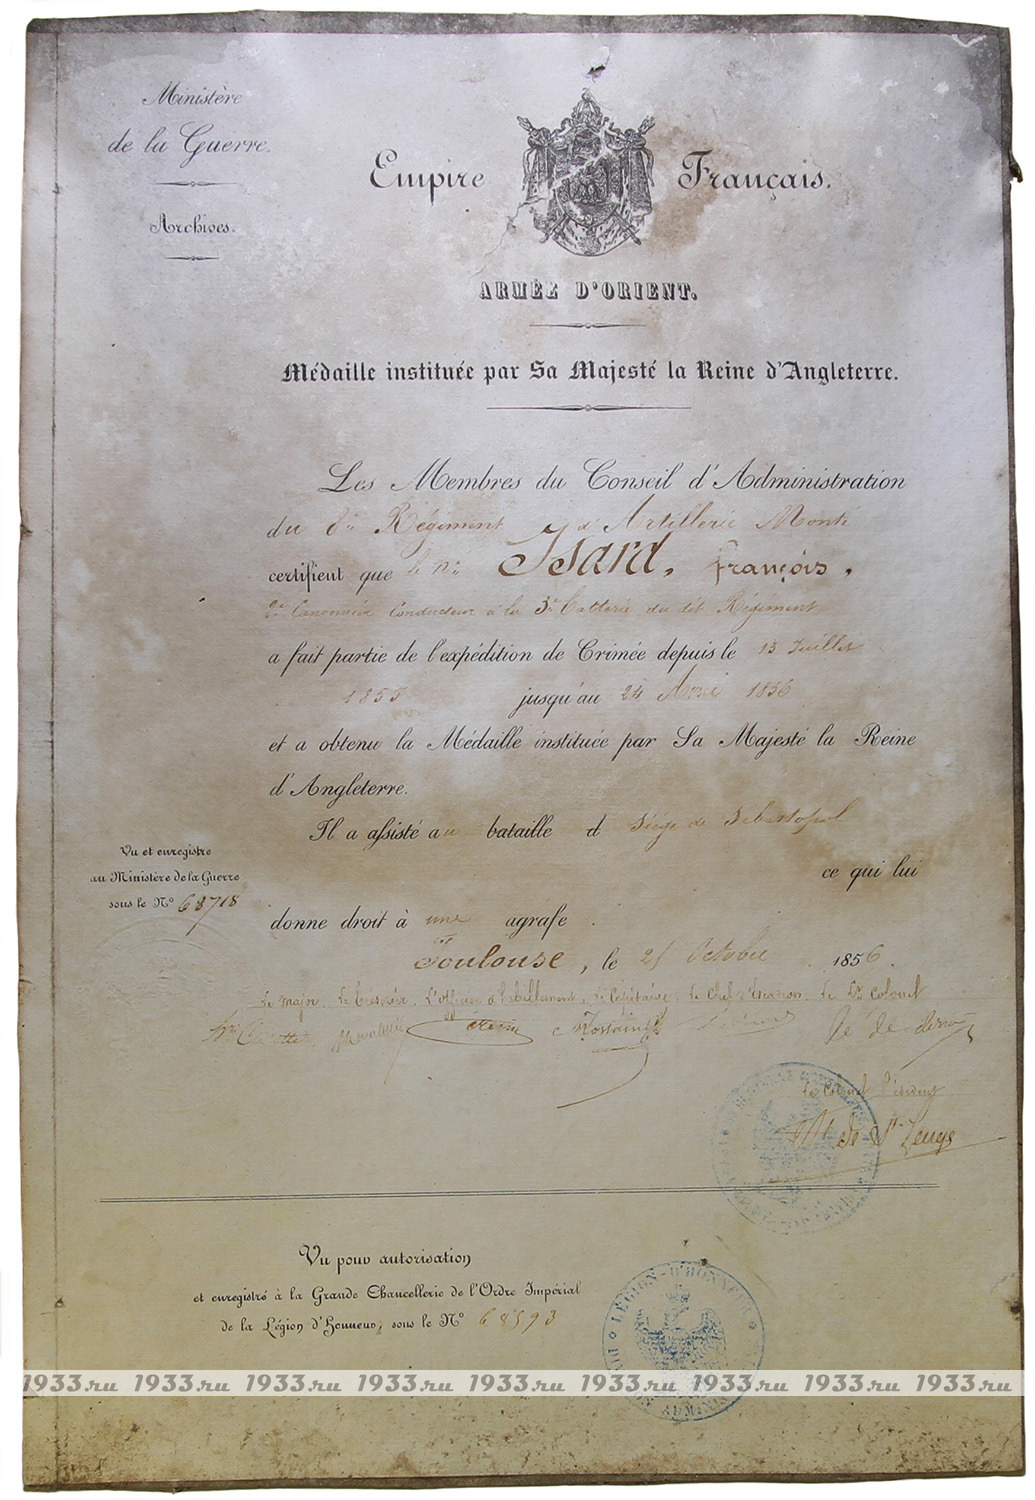 Ministère
de la Guerre.
Archives.
Empire Français.
ARMÉE D'ORIENT.
Médaille instituée par Sa Majesté la Reine d'Angleterre.
Les Membres du Conseil d'Administration
du 8e Régiment d'Artillerie Monté
certifient que le né Isard, François,
2e Canonnier Conducteur à la 3e Batterie du dit Régiment
a fait partie de l'expédition de Crimée depuis le 13 Juillet
1855 jusqu'au 24 Avril 1856
et a obtenu la Médaille instituée par Sa Majesté la Reine
d'Angleterre.
Il a assisté au bataille d Siège de Sébastopol
ce qui lui
donne droit à une agrafe.
Vu et enregistré
au Ministère de la Guerre
sous le N° 68718
Toulouse, le 21 Octobre 1856.
Le Major. Le Trésorier. L'Officier d'habillement. Le Capitaine. Le Chef d'Escadron. Le Lt Colonel
Le Colonel Président
de St
Vu pour autorisation
et enregistré à la Grande Chancellerie de l'Ordre Impérial
de la Légion d'Honneur, sous le N° 68593
LÉGION D'HONNEUR
1933.ru 1933.ru 1933.ru 1933.ru 1933.ru 1933.ru 1933.ru 1933.ru 1933.ru